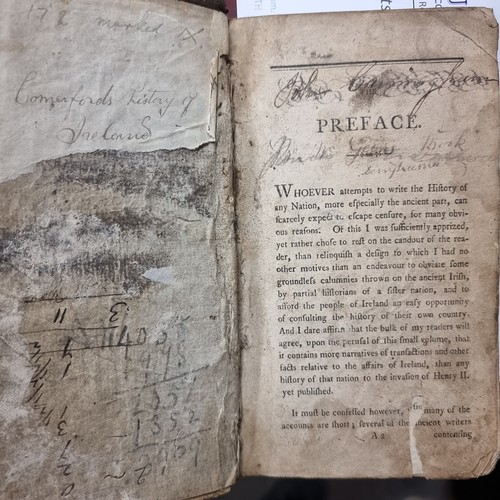 17 marked X.
Comerfords History of
Ireland
John Cuningham
PREFACE.
Book
WHOEVER attempts to write the History of
any Nation, more especially the ancient part, can
scarcely expect to escape censure, for many obvi-
ous reasons. Of this I was sufficiently apprized,
yet rather chose to rest on the candour of the rea-
der, than relinquish a design to which I had no
other motives than an endeavour to obviate some
groundless calumnies thrown on the ancient Irish,
by partial historians of a sister nation, and to
afford the people of Ireland an easy opportunity
of consulting the history of their own country.
And I dare affirm that the bulk of my readers will
agree, upon the perusal of this small volume, that
it contains more narratives of transactions and other
facts relative to the affairs of Ireland, than any
history of that nation to the invasion of Henry II.
yet published.
It must be confessed however, many of the
accounts are short; several of the ancient writers
A 2 contenting